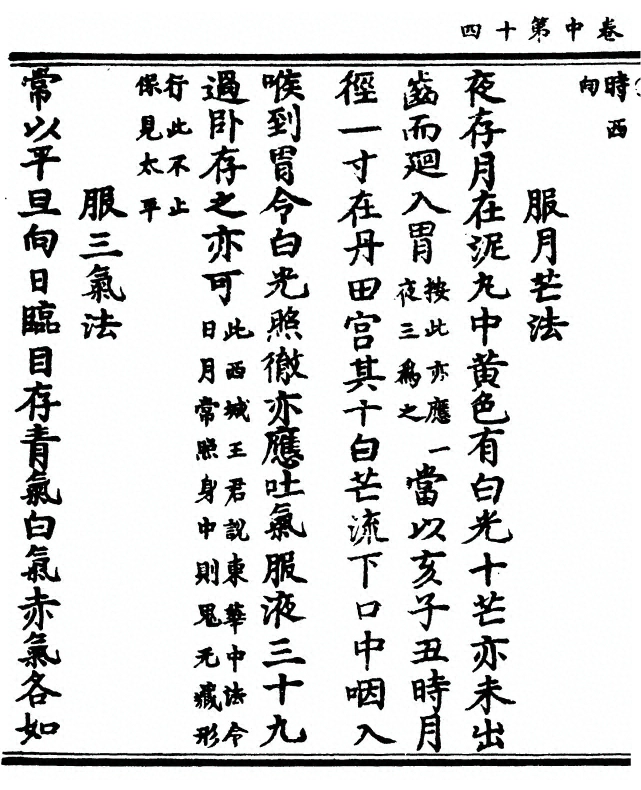 卷中第十四
時西
向
服月芒法
夜存月在泥丸中黄色有白光十芒亦未出
齒而廻入胃
按此亦應一
夜三為之
當以亥子丑時月
徑一寸在丹田宫其十白芒流下口中咽入
喉到胃令白光照徹亦應吐氣服液三十九
過卧存之亦可
此西城王君說東華中法令
日月常照身中則鬼无藏形
行此不止
保見太平
服三氣法
常以平旦向日臨目存青氣白氣赤氣各如